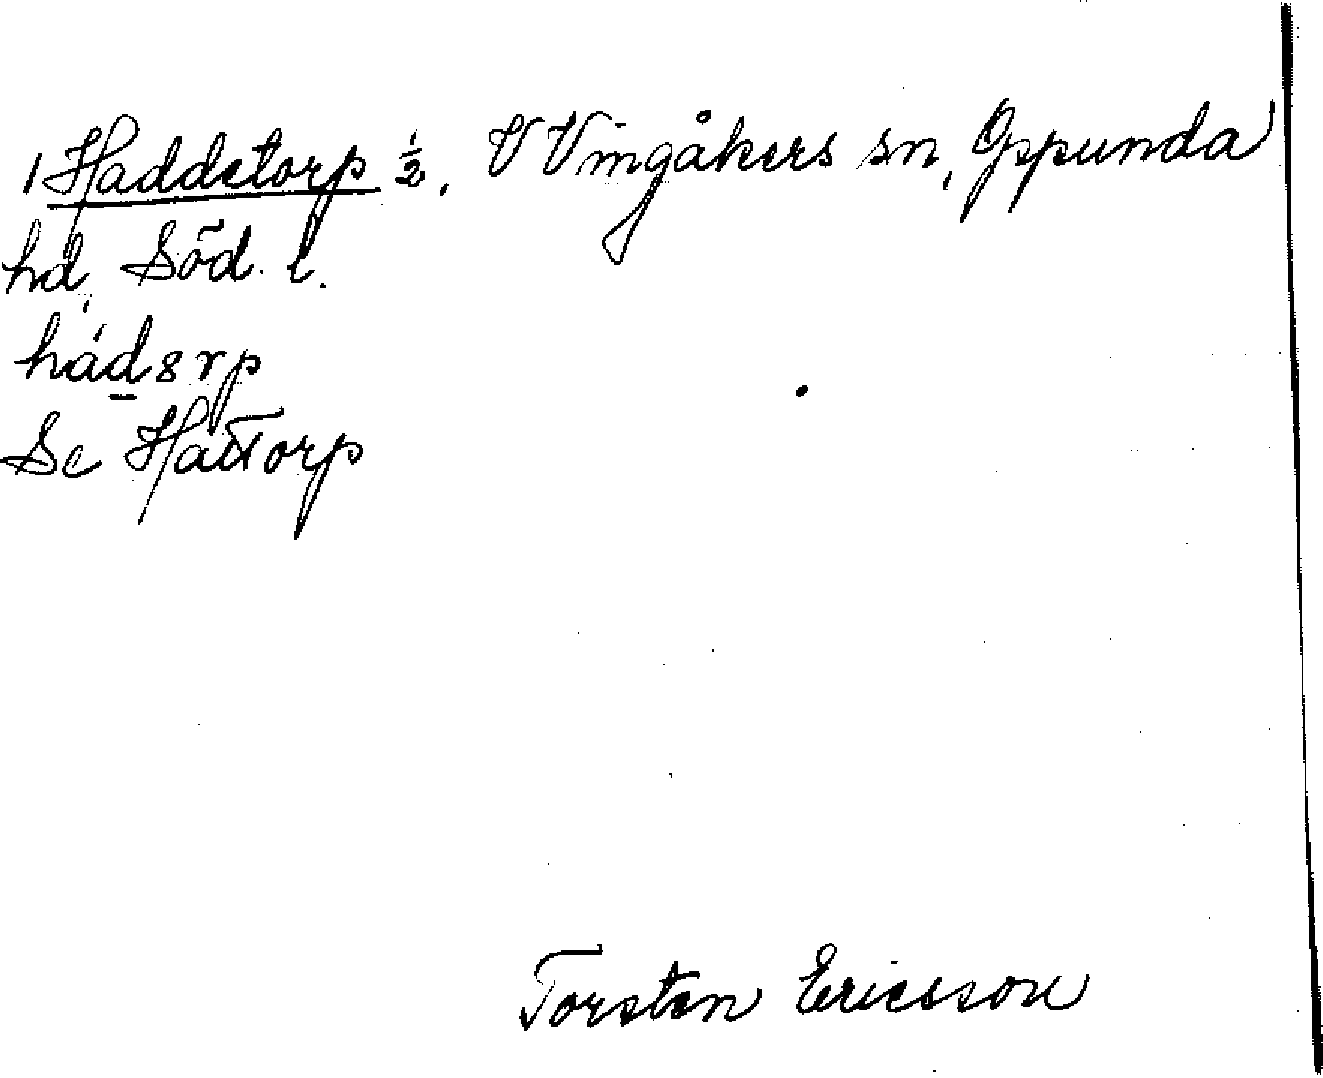 1 Haddetorp ½, V Vingåkers sn, Oppunda
hd, Söd. l.
hádsrp
Se Hattorp
Torsten Ericsson